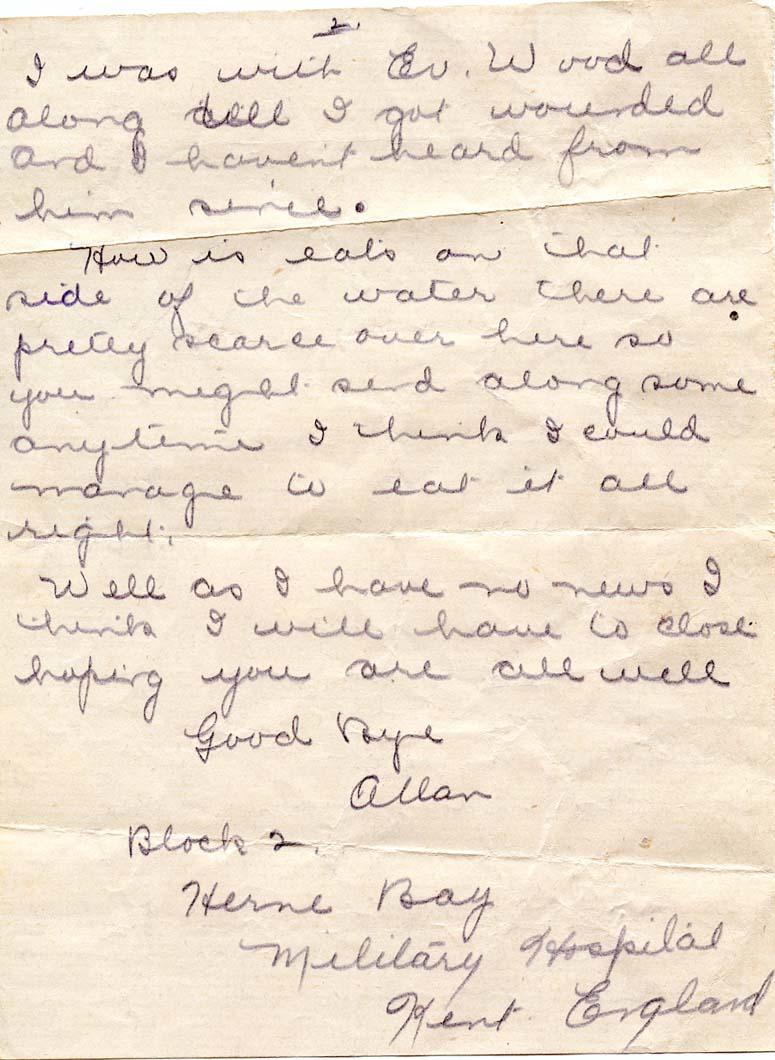 2.
I was with Ev. Wood all
along till I got wounded
and I havent heard from
him since.
How is eats on that
side of the water there are
pretty scarce over here so
you might send along some
anytime I think I could
manage to eat it all
right.
Well as I have no news I
think I will have to close
hoping you are all well
Good Bye
Allan
Block 2.
Herne Bay
Military Hospital
Kent England